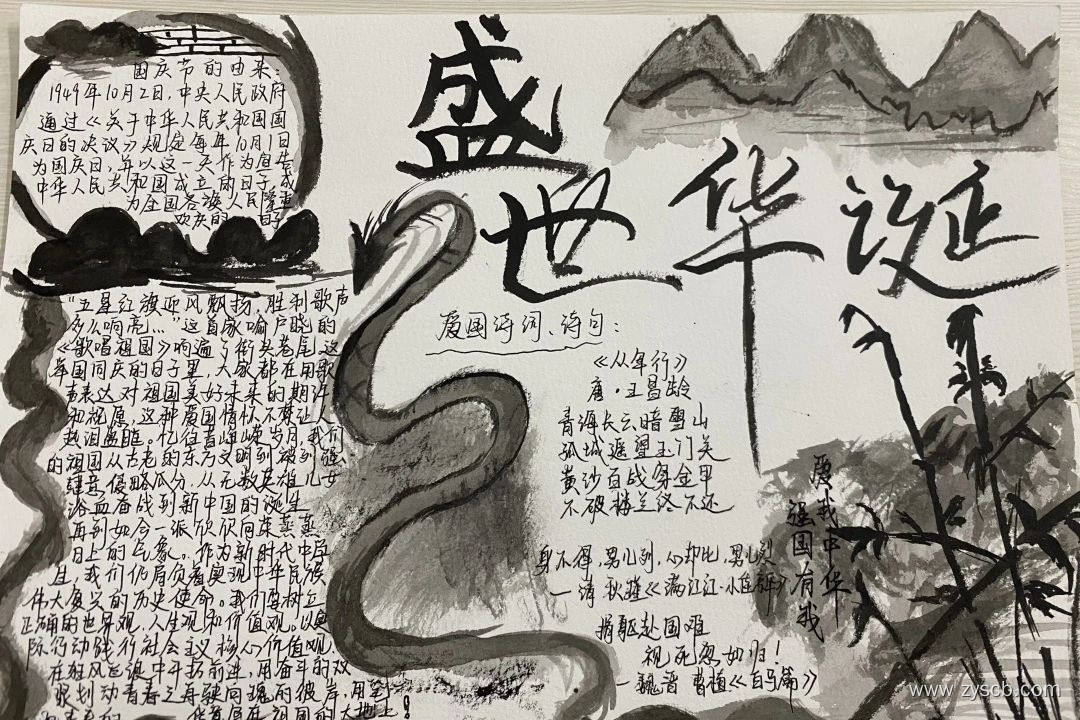 盛世华诞
国庆节的由来:
1949年10月2日,中央人民政府
通过《关于中华人民共和国国
庆日的决议》规定每年10月1日
为国庆日,并以这一天作为宣告
中华人民共和国成立的日子,成
为全国各族人民隆重
欢庆的 日子
"五星红旗迎风飘扬,胜利歌声
多么响亮..."这首家喻户晓的
《歌唱祖国》响遍了街头巷尾,这
举国同庆的日子里,大家都在用歌
声表达对祖国美好未来的期许
和祝愿,这种爱国情怀不禁让人
热泪盈眶。忆往昔峥嵘岁月,我们
的祖国从古老的东方文明到被列强
肆意侵略瓜分,从无数英雄儿女
浴血奋战到新中国的诞生
再到如今一派欣欣向荣蒸蒸
日上的气象。作为新时代中学
生,我们仍肩负着实现中华民族
伟大复兴的历史使命。我们要树立
正确的世界观,人生观和价值观。以实
际行动践行社会主义核心价值观,
在斑风巨浪中开拓前进,用奋斗的双
桨划动青春之舟驶向瑰的彼岸,用
华章厚底 祖国的大地上!
爱国诗词、诗句:
《从军行》
唐·王昌龄
青海长云暗雪山
孤城遥望玉门关
黄沙百战穿金甲
不破楼兰终不还
身不得,男儿列,心却比,男儿烈
—清 秋瑾《满江红·小住京华》
捐躯赴国难
视死忽如归!
—魏晋 曹植《白马篇》
爱我中华
强国有我
www.zyscb.com